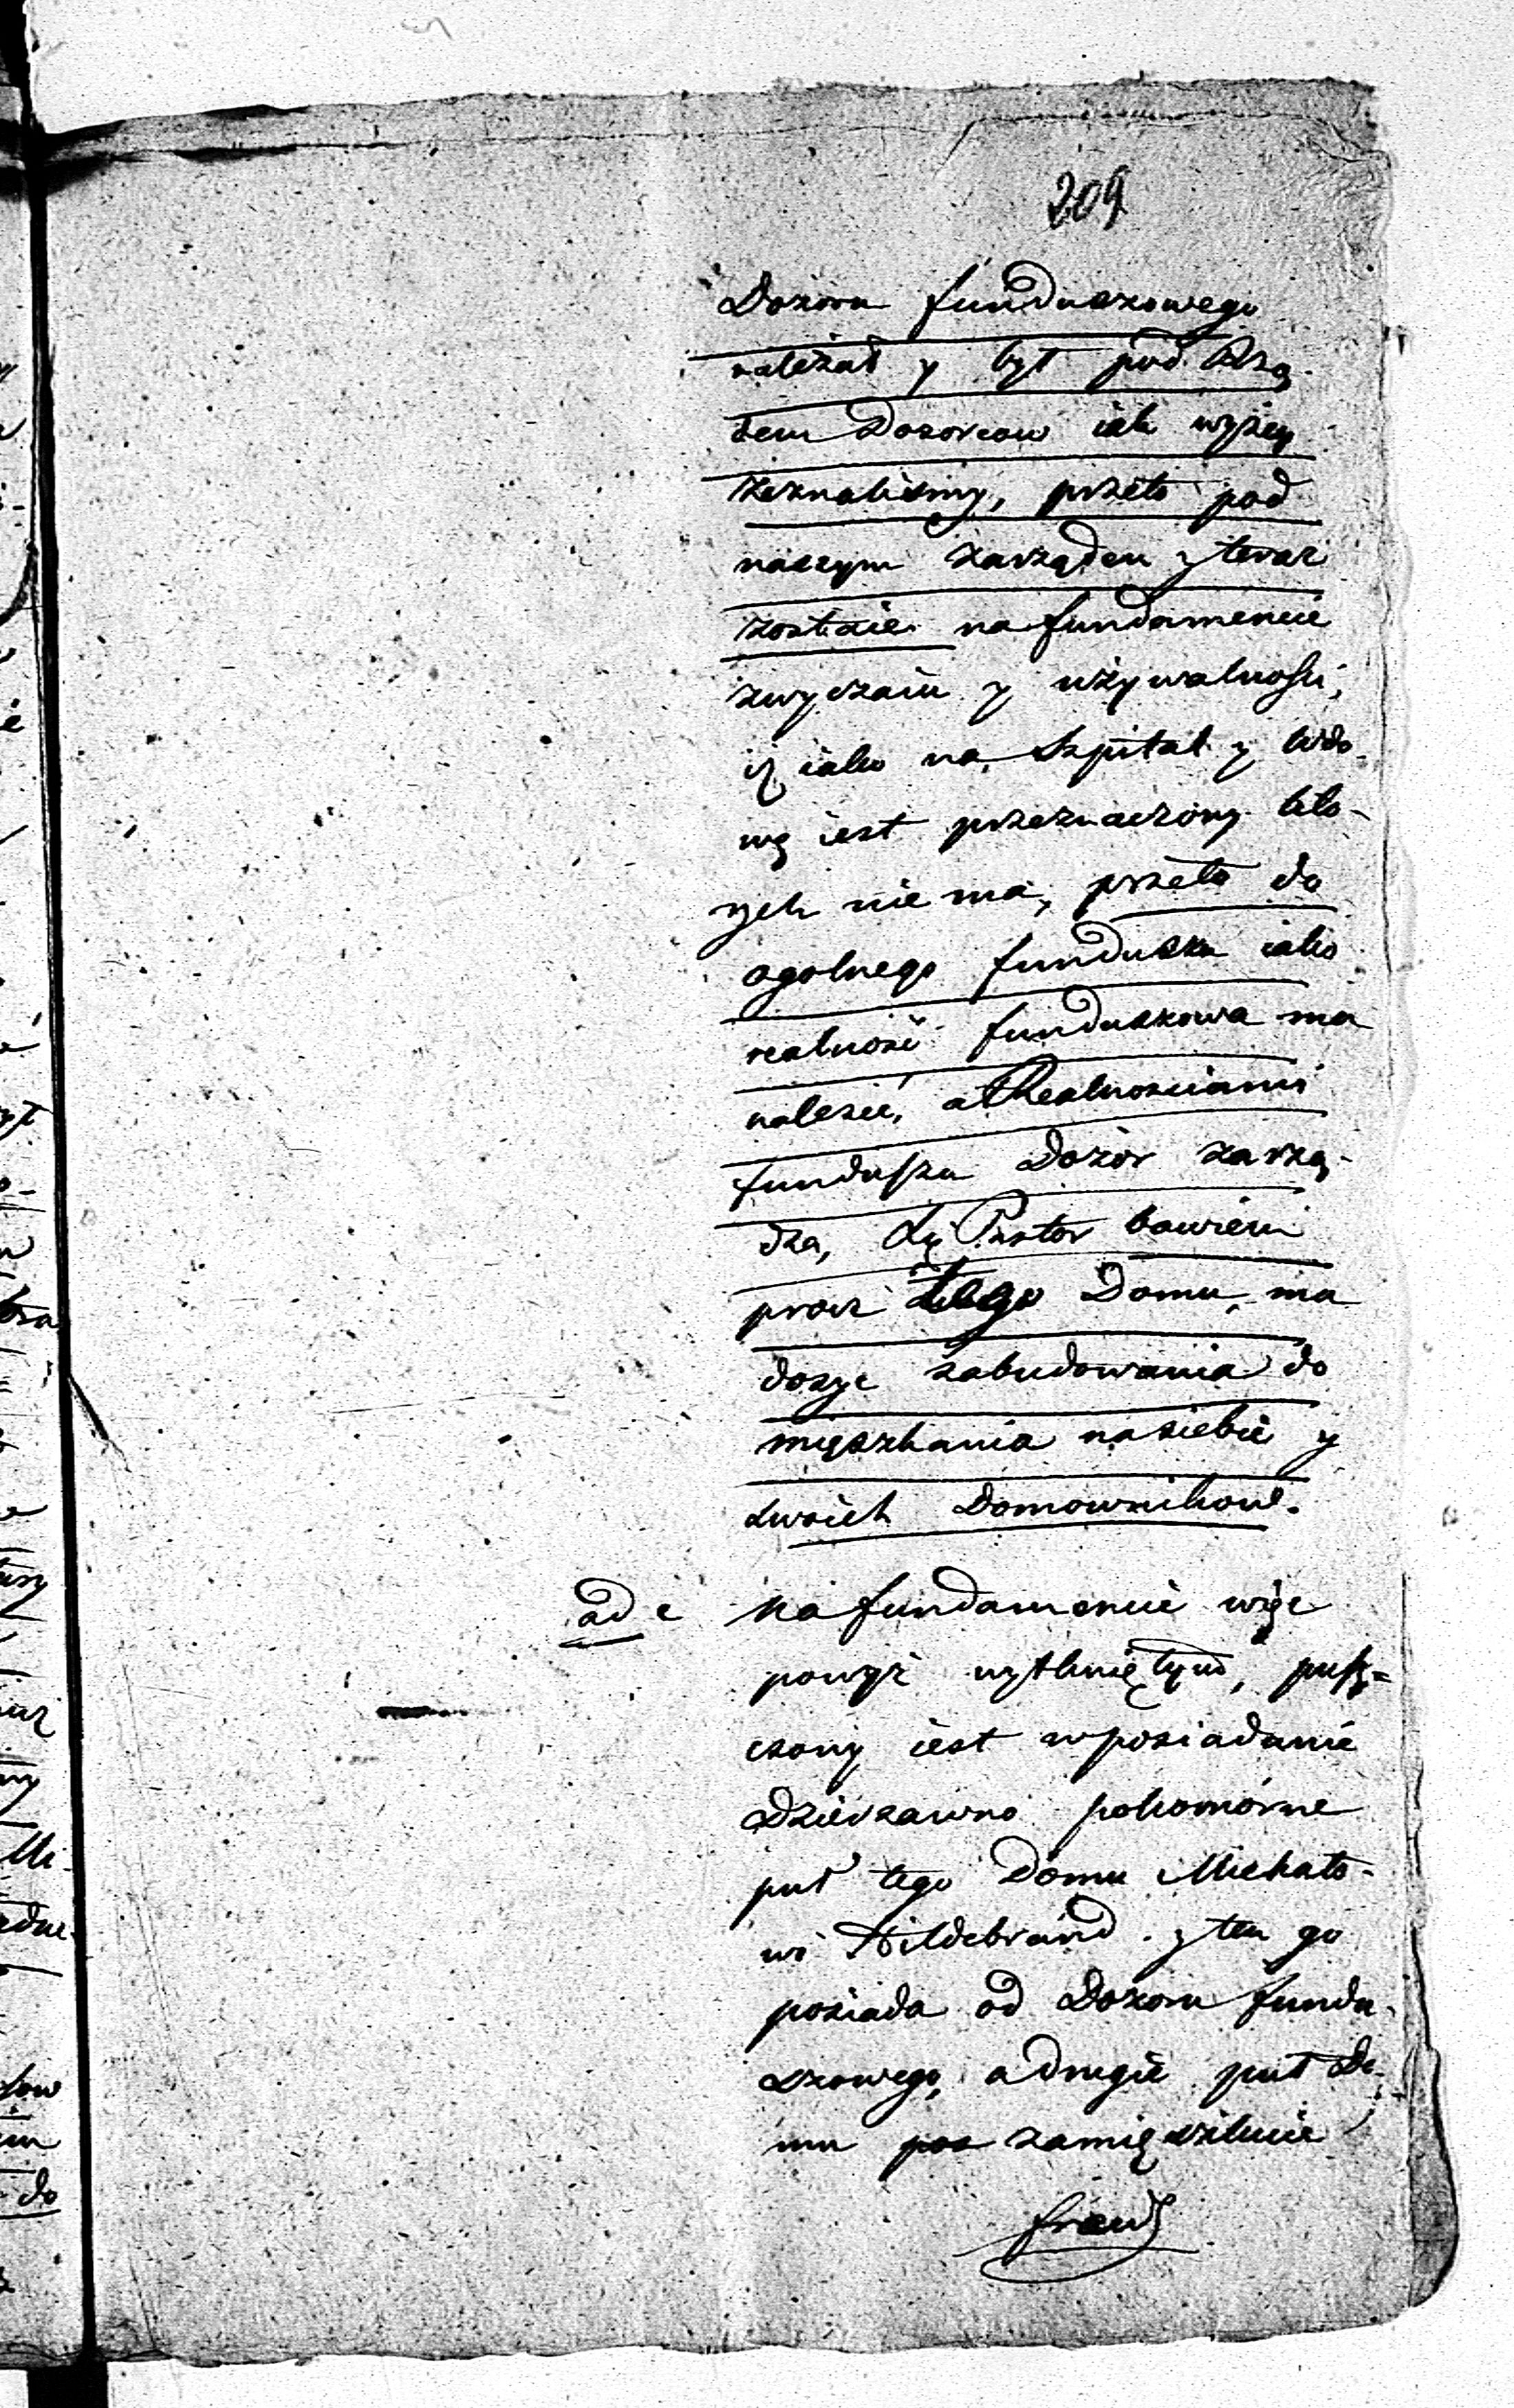 209
Dozoru funduszowego
należał y był pod Rzą-
dem Dozorcow iak wyżey
zeznaliśmy, przeto pod
naszym zarządem y teraz
zostaie na fundamencie
zwyczaiu y używalnośći,
iż iako na Szpital y wdo-
wę iest przeznaczony kto-
rych nie ma, przeto do
ogolnego funduszu iako
realność funduszowa ma
należeć, a Realnościami
funduszu Dozór zarzą-
dza, Xdz Pastor bowiem
procz tego Domu, ma
dosyc zabudowania do
mięszkania na siebie y
swoich Domownikow.
ad c Na fundamencie więc
powyż wytkniętym, pusz=
czony iest w posiadanie
Dzierzawno pokomorne
puł tego Domu Michało-
wi Hildebrand y ten go
posiada od Dozoru fundu-
szowego, a drugie puł Do-
mu